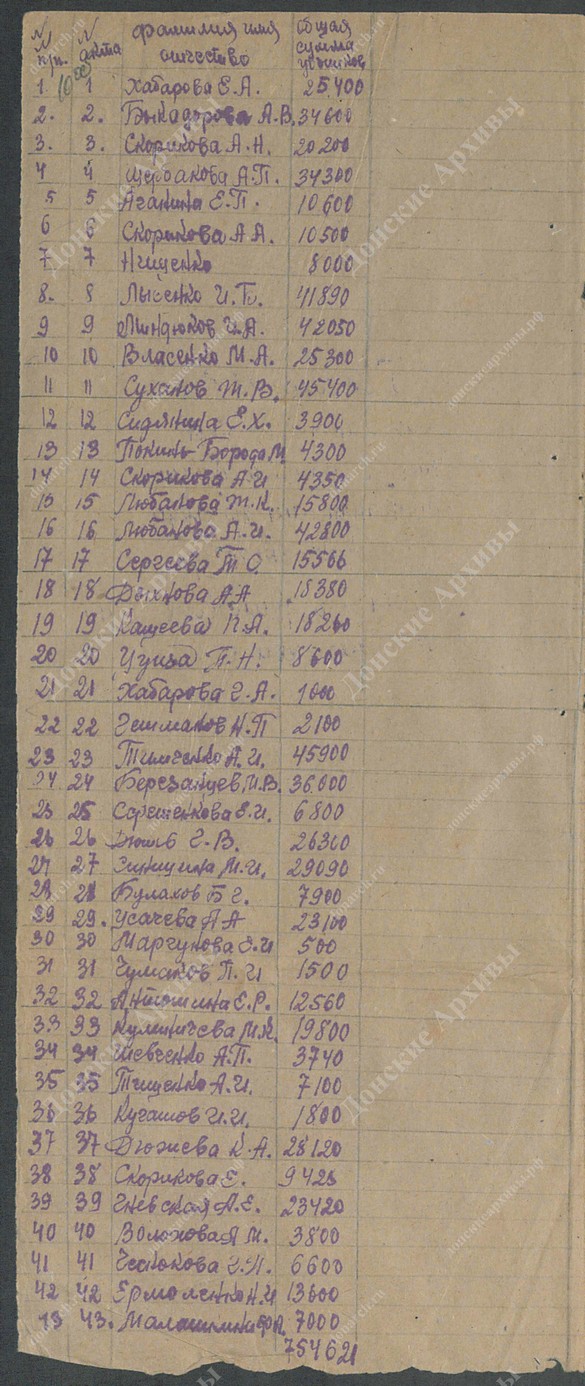 N N фамилия имя общая
п/п. акта отчество сумма
убытков
1 1 Хабарова Е.А. 25400
2. 2. Быкадорова А.В. 34600
3. 3. Скорикова А.Н. 20200
4 4 Щербакова А.П. 34300
5 5 Аганина Е.П. 10600
6 6 Скорикова А.А. 10500
7 7 Нищенко 8000
8. 8 Лысенко И.Т. 41890
9 9 Линдюков И.А. 42050
10 10 Власенко М.А. 25300
11 11 Суханов Т.В. 45400
12 12 Сидянина Е.Х. 3900
13 13 4300
14 14 Скорикова А.И 4350
15 15 Любахова Т.К. 15800
16 16 Любахова А.И. 42800
17 17 Сергеева Т О. 15566
18 18 А А 18380
19 19 Кащеева П.А. 18260
20 20 П.Н. 8600
21 21 Хабарова Е.А.
22 22 Н.П 2100
23 23 Тимченко А.И. 45900
24 24 Березанцев И.В. 36000
25 25 Е.И. 6800
26 26 Е.В. 26300
27 27 Синицина М.И. 29090
28 28 Булахов Б Е. 7900
29 29. Усачева А А 23100
30 30 Маргунова Е.И 500
31 31 Чумаков П.И 1500
32 32 Антюшина Е.Р. 12560
33 33 Куминичева М.К. 19800
34 34 Шевченко А.П. 3740
35 35 Тищенко А.И. 7100
36 36 И.И. 1800
37 37 Дюжева К.А. 28120
38 38 Скорикова Е. 9428
39 39 Гневская А.Е. 23420
40 40 Волохова А М. 3800
41 41 6600
42 42 Ермоленко Н.И 13600
43 43. Малашкина 7000
754621
Донские Архивы
донскиеархивы.рф